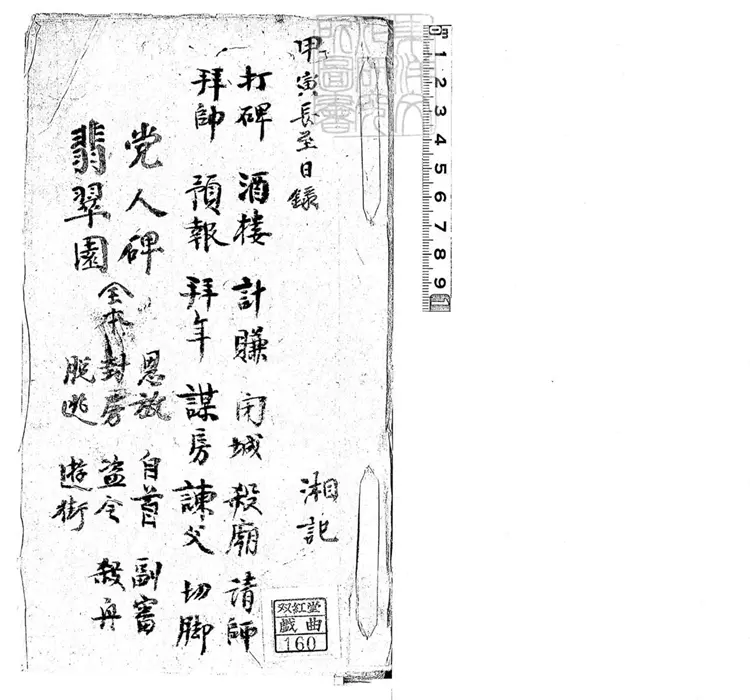 甲寅長至日錄
湘記
打碑 酒楼 計賺 闭城 殺廟 請師
拜師 預報 拜年 謀房 諫父 切脚
党人碑
恩放 自首 副審
翡翠園 全本
封房 盗令 殺舟
脫逃 遊街
双紅堂
戲曲
160
1 2 3 4 5 6 7 8 9